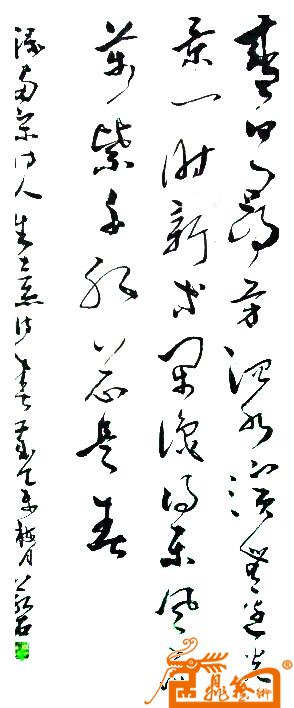 勝日尋芳泗水濱無邊光
景一時新等閑識得東風面
萬紫千紅總是春
錄南宋詩人朱熹詩春